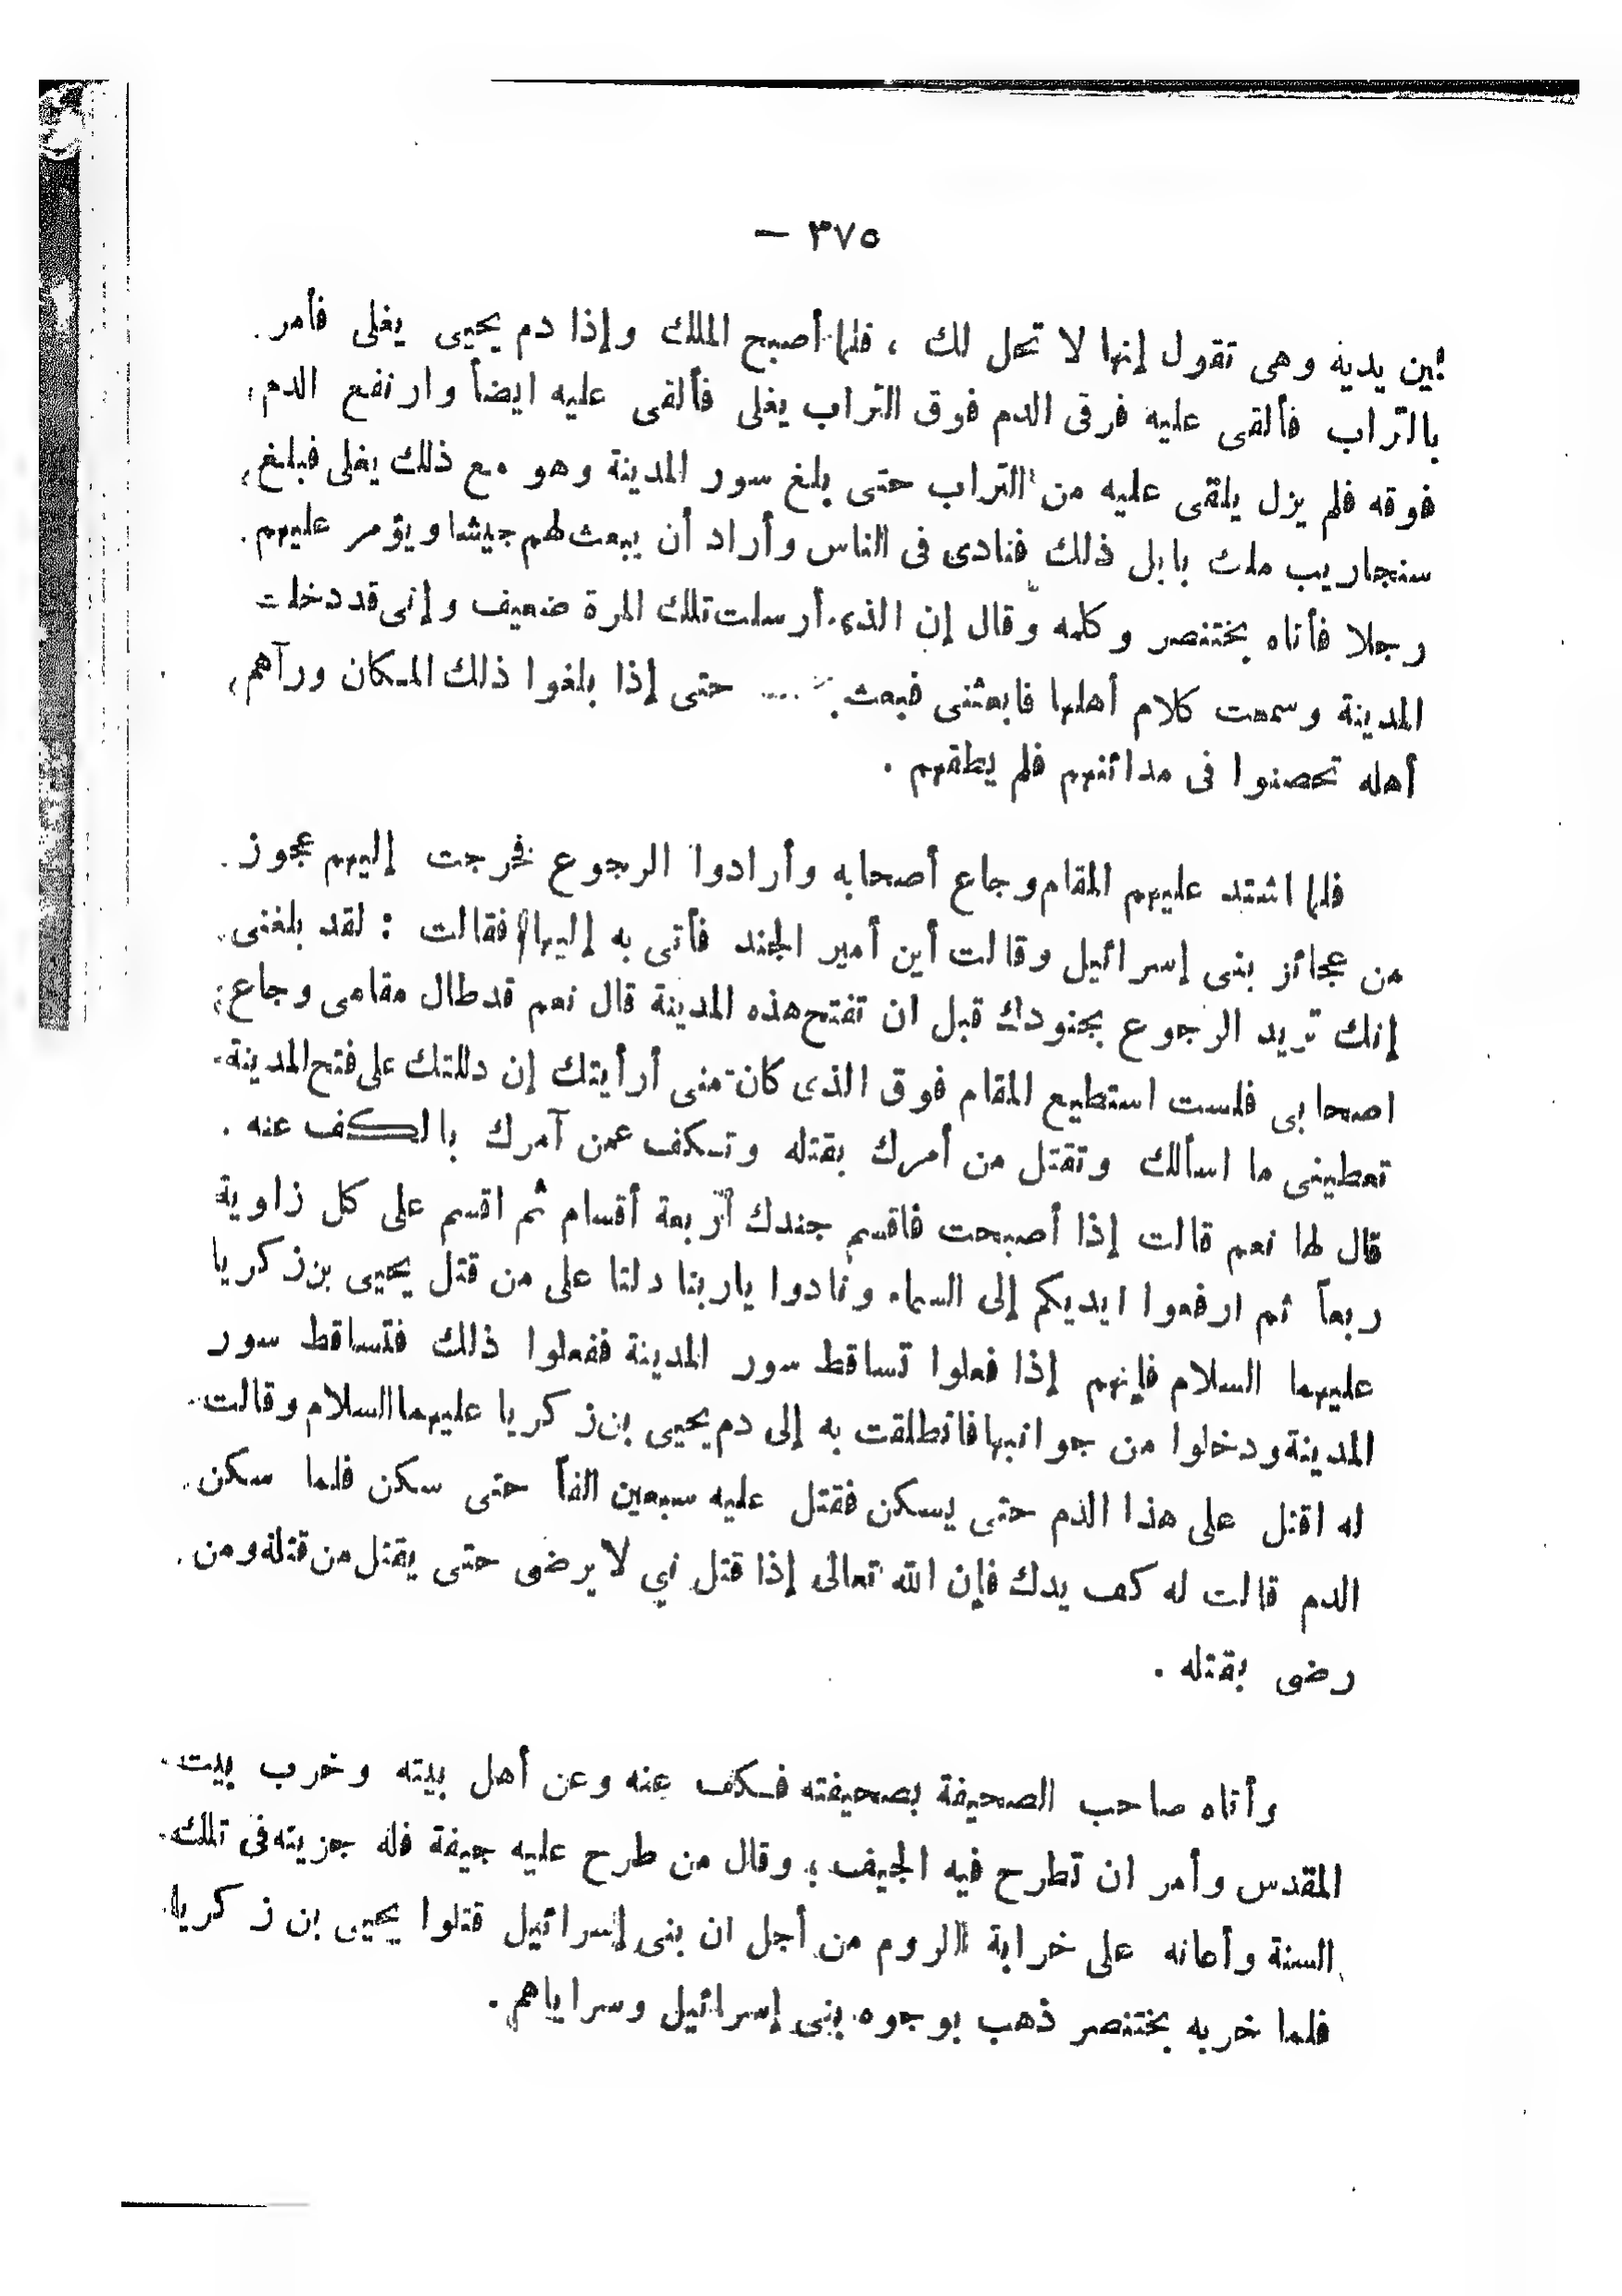 — ٣٧٥
بين يديه وهى تقول إنها لا تحل لك ، فلما أصبح الملك وإذا دم يحيى يغلى فأمر
بالتراب فألقى عليه فرقى الدم فوق التراب يغلى فألقى عليه ايضاً وارتفع الدم
فوقه فلم يزل يلقى عليه من التراب حتى بلغ سور المدينة وهو مع ذلك يغلى فبلغ
سنجاريب ملك بابل ذلك فنادى فى الناس وأراد أن يبعث لهم جيشا ويؤمر عليهم
رجلا فأتاه بختنصر وكلمه وقال إن الذى أرسلت تلك المرة ضعيف وإنى قد دخلت
المدينة وسمعت كلام أهلها فابعثنى فبعث .... حتى إذا بلغوا ذلك المكان ورآهم
أهله تحصنوا فى مدائنهم فلم يطقهم .
فلما اشتد عليهم المقام وجاع أصحابه وأرادوا الرجوع فخرجت إليهم عجوز
من عجائز بنى إسرائيل وقالت أين أمير الجند فأتى به إليها فقالت : لقد بلغنى
إنك تريد الرجوع بجنودك قبل ان تفتح هذه المدينة قال نعم قد طال مقامى وجاع
اصحابى فلست استطيع المقام فوق الذى كان منى أرأيتك إن دللتك على فتح المدينة
تعطينى ما اسألك وتقتل من أمرك بقتله وتكف عمن آمرك بالكف عنه .
قال لها نعم قالت إذا أصبحت فاقسم جندك أربعة أقسام ثم اقسم على كل زاوية
ربعاً ثم ارفعوا ايديكم إلى السماء ونادوا ياربنا دلنا على من قتل يحيى بن زكريا
عليهما السلام فإنهم إذا فعلوا تساقط سور المدينة ففعلوا ذلك فتساقط سور
المدينة ودخلوا من جوانبها فانطلقت به إلى دم يحيى بن زكريا عليهما السلام وقالت
له اقتل على هذا الدم حتى يسكن فقتل عليه سبعين الفاً حتى سكن فلما سكن
الدم قالت له كف يدك فإن الله تعالى إذا قتل نبي لا يرضى حتى يقتل من قتله ومن
رضى بقتله .
وأتاه صاحب الصحيفة بصحيفته فكف عنه وعن أهل بيته وخرب بيت
المقدس وأمر ان تطرح فيه الجيف ؛ وقال من طرح عليه جيفة فله جزيته فى تلك
السنة وأعانه على خرابة الروم من أجل ان بنى إسرائيل قتلوا يحيى بن زكريا
فلما خربه بختنصر ذهب بوجوه بنى إسرائيل وسراياهم .